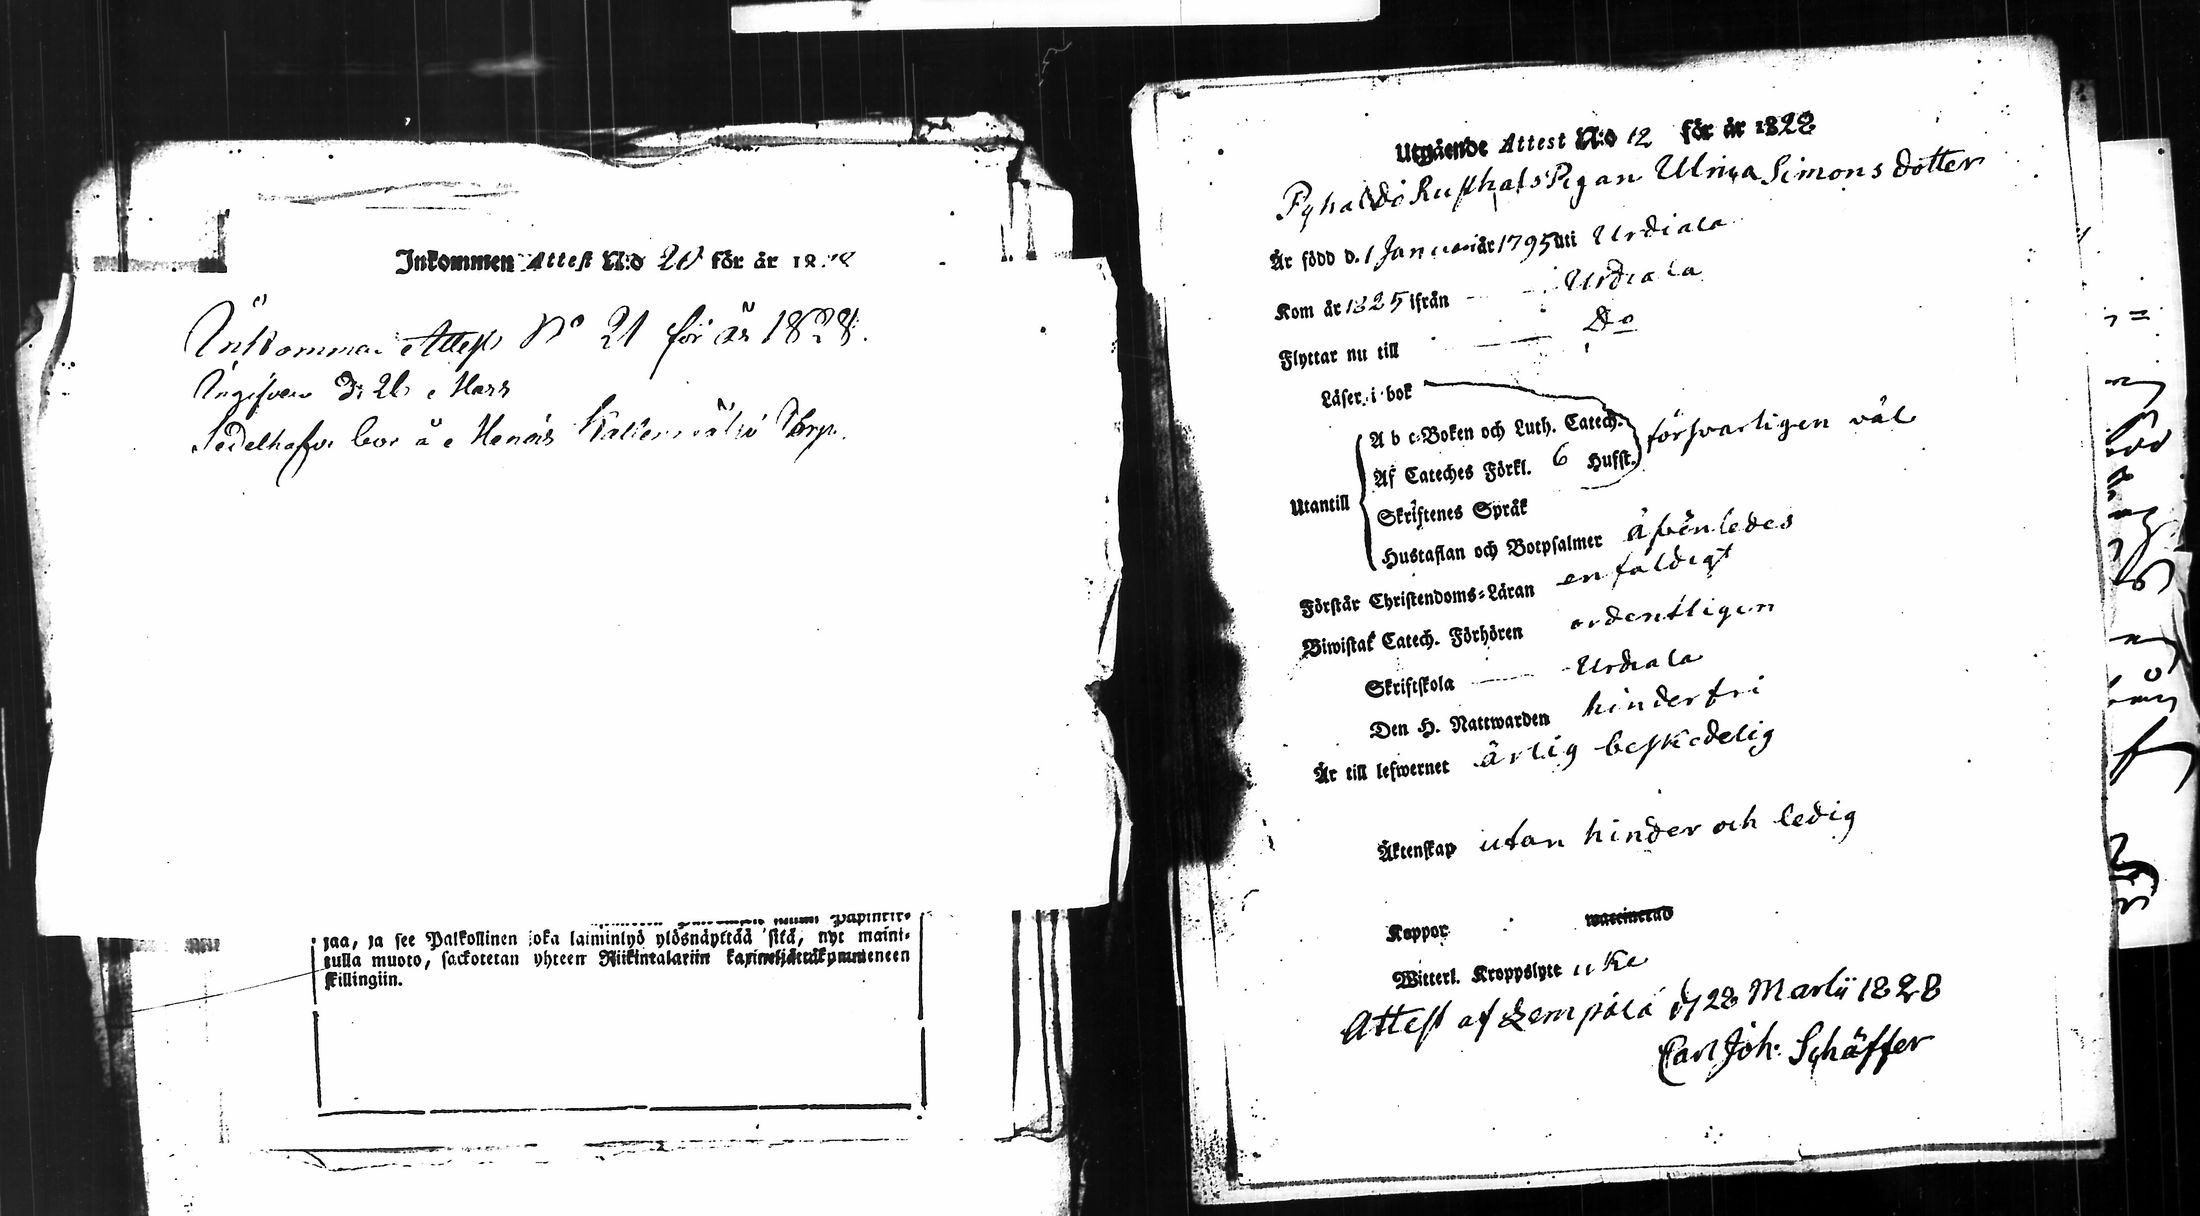 Inkommen Attest N:o 20 för år 18
Inkommen Attest No 21 för år 1828.
Ingifven d. 26 Mars
Sedelhafv. bor å Torp.
Papinerir-
jaa, ja see Palkollinen joka laiminlyö ylösnäyttää sitä, nyt maini-
tulla muoto, sackotetan yhteen Riikintalariin
skillingiin.
Utgående Attest N:o 12 för år 1828
Rusthåls Pigan Ulrica Simons dotter
Är född d. 1 Januari år 1795 uti Urdiala
Kom år 1825 ifrån Urdiala
Flyttar nu till Do
Läser i bok
A b c-Boken och Luth. Catech. försvarligen väl
Af Cateches Förkl. 6 Hufst.
Utantill
Skriftenes Språk
Hustaflan och Botpsalmer äfvenledes
Förstår Christendoms-Läran enfaldigt
Biwistat Catech. Förhören ordentligen
Skriftskola Urdiala
Den H. Nattwarden hinderfri
Är till lefwernet ärlig beskedelig
Äktenskap utan hinder och ledig
Koppor waccinerad
Witterl. Kroppslyte
Attest af Lempälä d 28 Martii 1828
Carl Joh. Schäffer